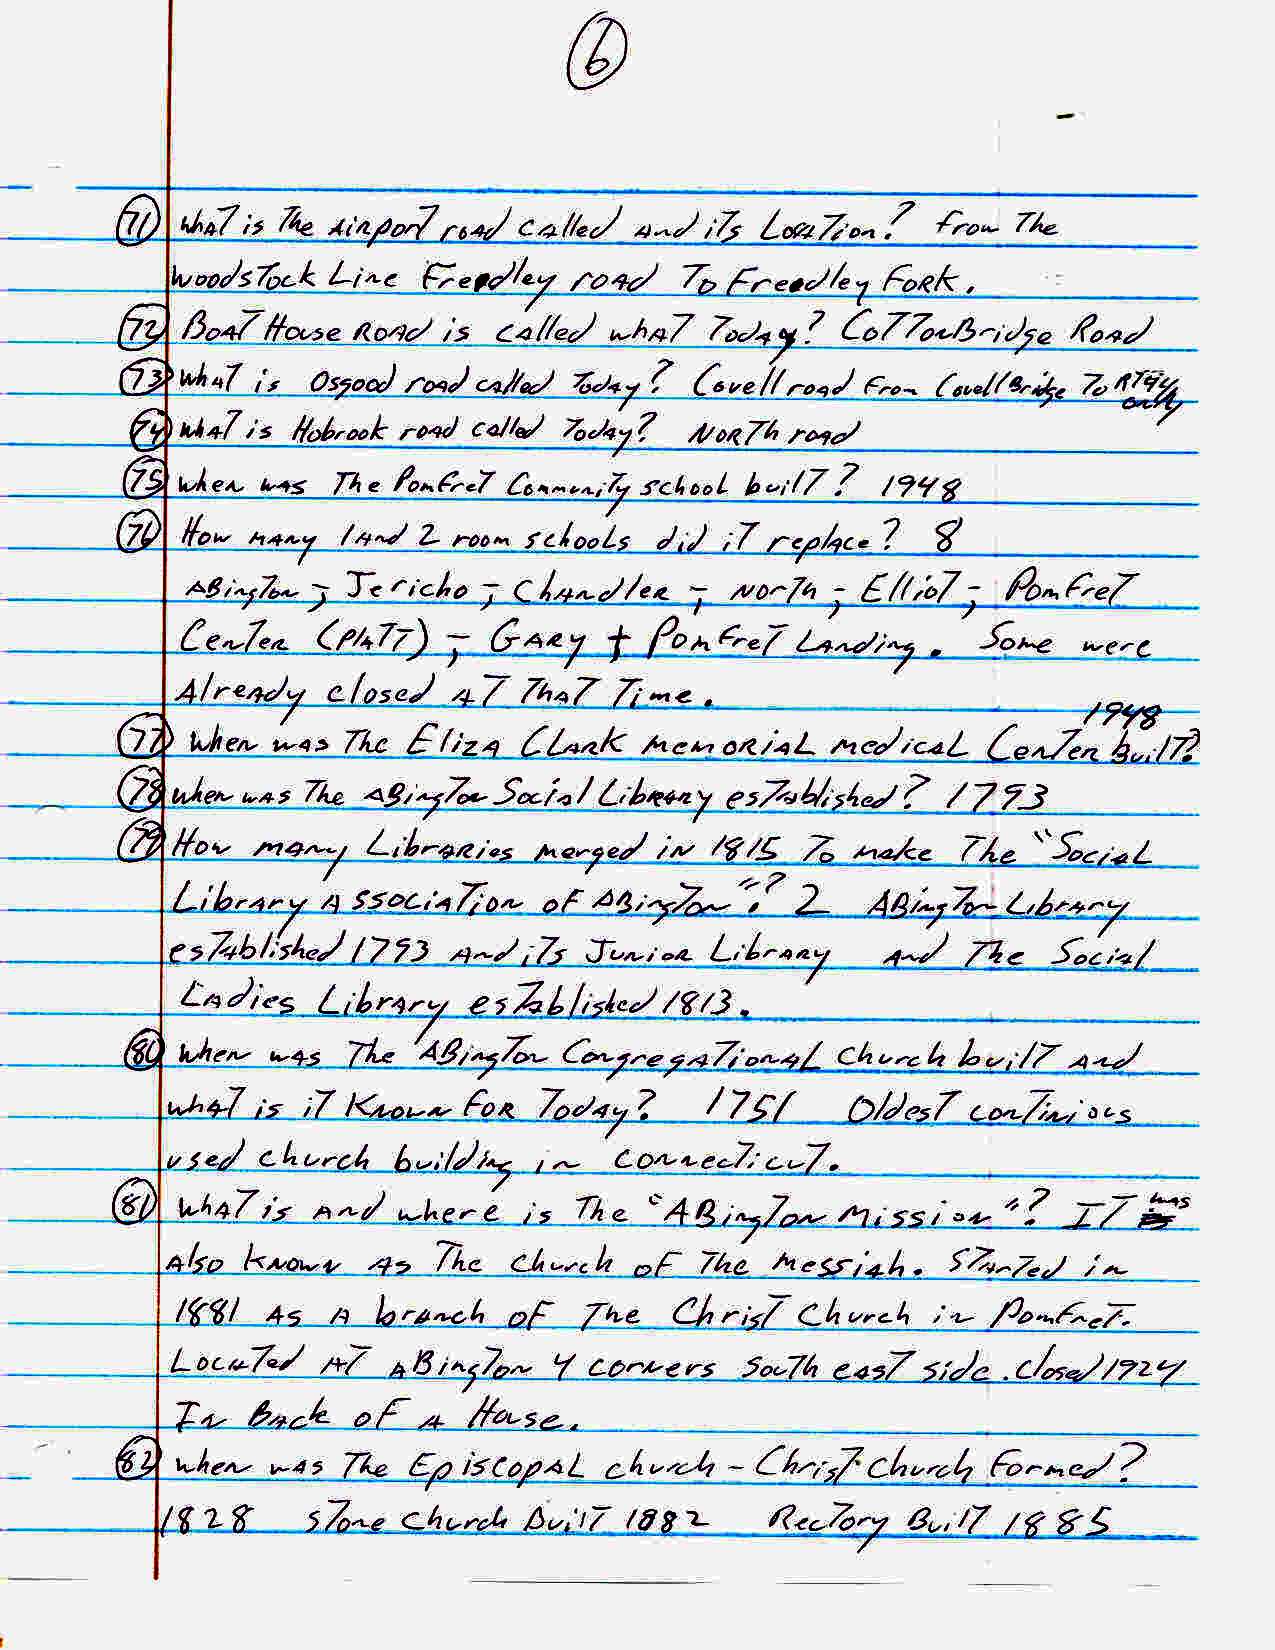 6
71 What is The Airport road called and its Location? From The
Woodstock Line Freedley road To Freedley Fork.
72 Boat House Road is called what Today? Cotton Bridge Road
73 What is Osgood road called Today? Covell road From Covell Bridge To RT 44
only
74 What is Hobrook road called Today? North road
75 When was The Pomfret Community school built? 1948
76 How many 1 And 2 room schools did it replace? 8
Abington -, Jericho -, Chandler -, North -, Elliot -, Pomfret
Center (Platt) -, Gary + Pomfret Landing. Some were
Already closed at That Time.
1948
77 When was The Eliza Clark Memorial Medical Center Built?
78 When was The Abington Social Library established? 1793
79 How many Libraries merged in 1815 To make The "Social
Library Association of Abington"? 2 Abington Library
established 1793 and its Junior Library and The Social
Ladies Library established 1813.
80 When was The Abington Congregational Church built and
what is it Known For Today? 1751 Oldest continious
used church building in Connecticut.
81 What is and where is The "Abington Mission"? IT was
also known as The Church of The Messiah. Started in
1881 as a branch of The Christ Church in Pomfret.
Located at Abington 4 corners South east side. Closed 1924
In Back of a House.
82 When was The Episcopal church - Christ Church Formed?
1828 Stone Church Built 1882 Rectory Built 1885